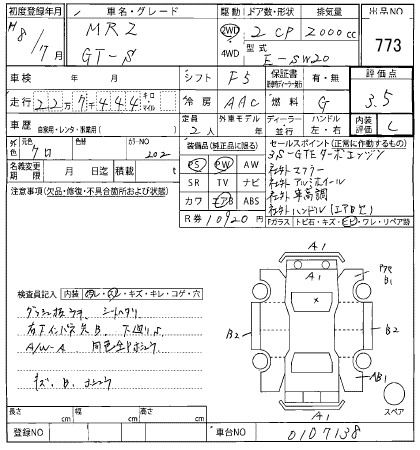 初度登録年月 車名・グレード 駆動 ドア数・形状 排気量 出品NO
H8/7月 MR2 GT-S 2WD 4WD 2 CP 2000 cc 773
型式 E-SW20
車検 年 月 シフト F5 保証書 有・無 評価点
走行 22万7千444 キロ マイル 冷房 AAC 燃料 G 3.5
車歴 自家用・レンタ・事業用( ) 定員 2人 外車モデル ディーラー 並行 ハンドル 左・右 内装評価 C
外装色 元色 クロ 色替 カラーNO 202
装備品(純正品に限る)
セールスポイント(正常に作動するもの)
名義変更期限 月 日 積載 t
PS PW AW
SR TV ナビ
カワ エアB ABS
R券 10920円
3S-GTEターボエンジン
社外マフラー
社外アルミホイール
社外車高調
社外ハンドル(エアBセ)
Fガラス トビ石・キズ・ヒビ・ワレ・リペア跡
注意事項(欠品・修復・不具合箇所および状態)
検査員記入 内装 ヨゴレ・コゲ・穴
A/W-A
キズ.B.
A1
A1
B1
B2
B2
AB1
A1
スペア
長さ cm 幅 cm 高さ cm
登録NO 車台NO 0107138